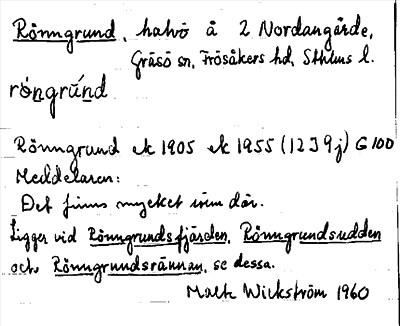 Rönngrund, halvö å 2 Nordangårde,
Gräsö sn, Frösåkers hd, Sthlms l.
rön̲grún̲d
Rönngrund ek 1905 ek 1955 (12J9j) G 100
Meddelaren:
Det finns mycket rönn där.
Ligger vid Rönngrundsfjärden, Rönngrundsudden
och Rönngrundsrännan, se dessa.
Malte Wickström 1960